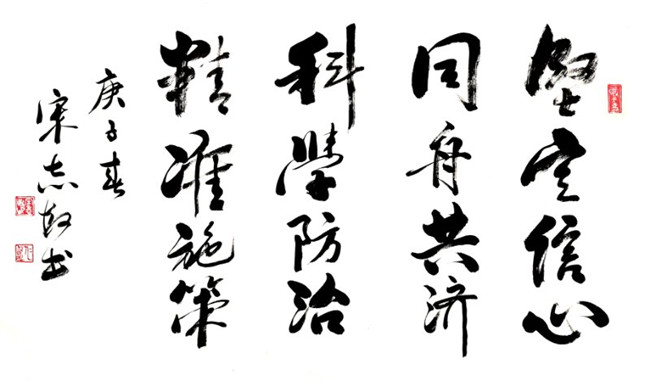 坚定信心
同舟共济
科學防治
精准施策
庚子春
宋志好书